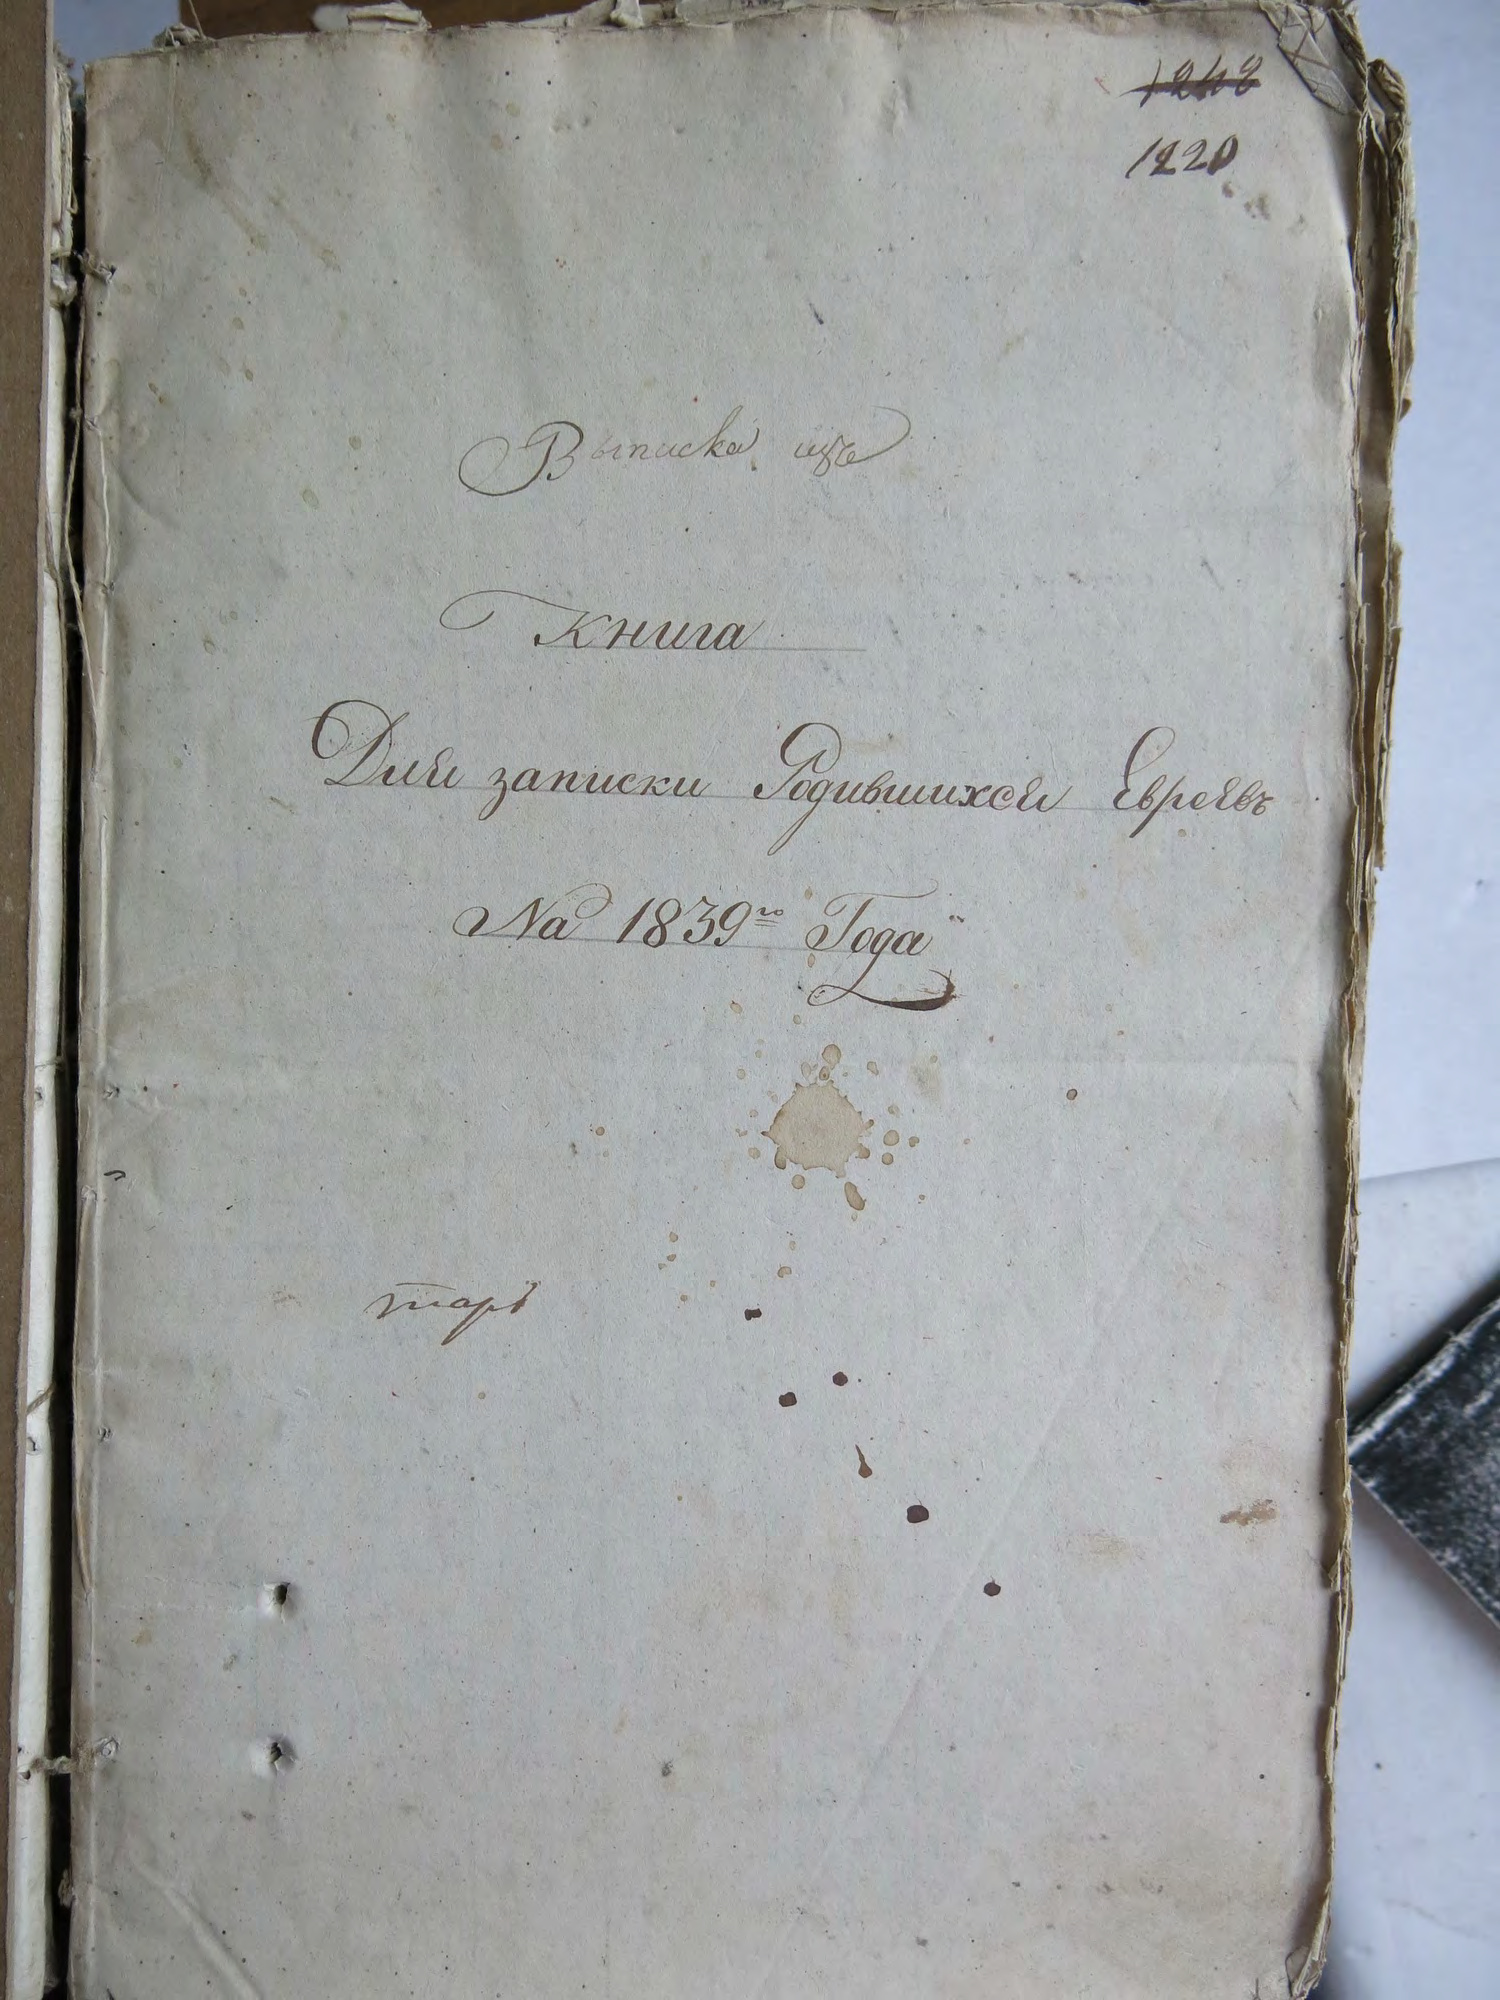 1248
1220
Выписка изъ
Книга
Для записки Родившихся Евреевъ
На 1839го Года